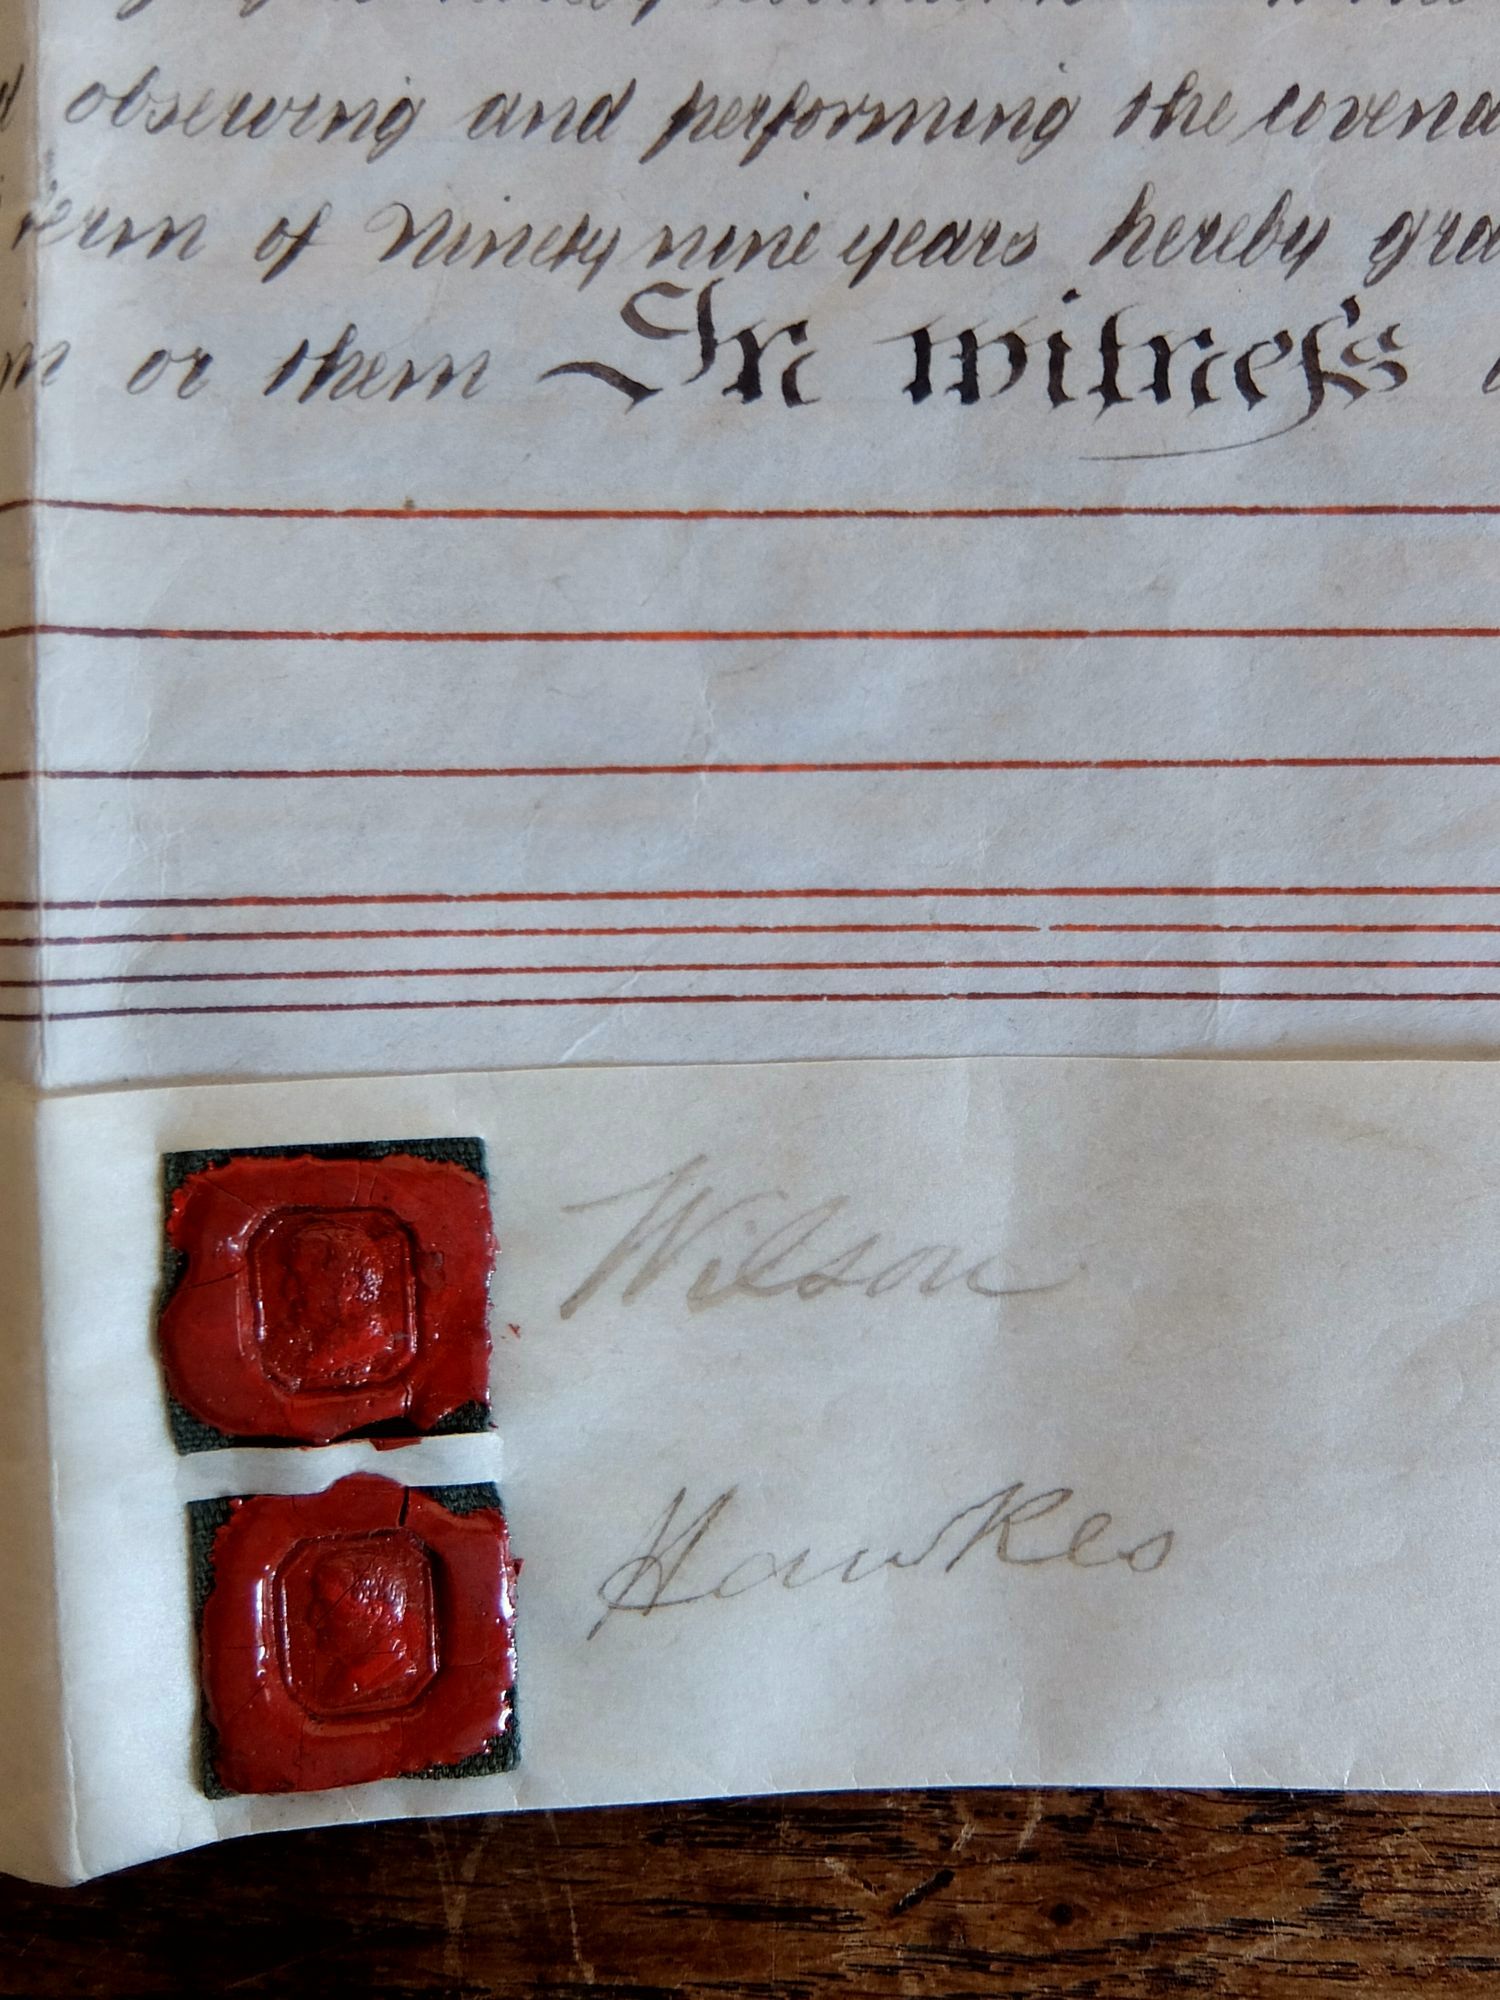 observing and performing the covena
term of Ninety nine years hereby gra
or them In witness
Wilson
Hawkes